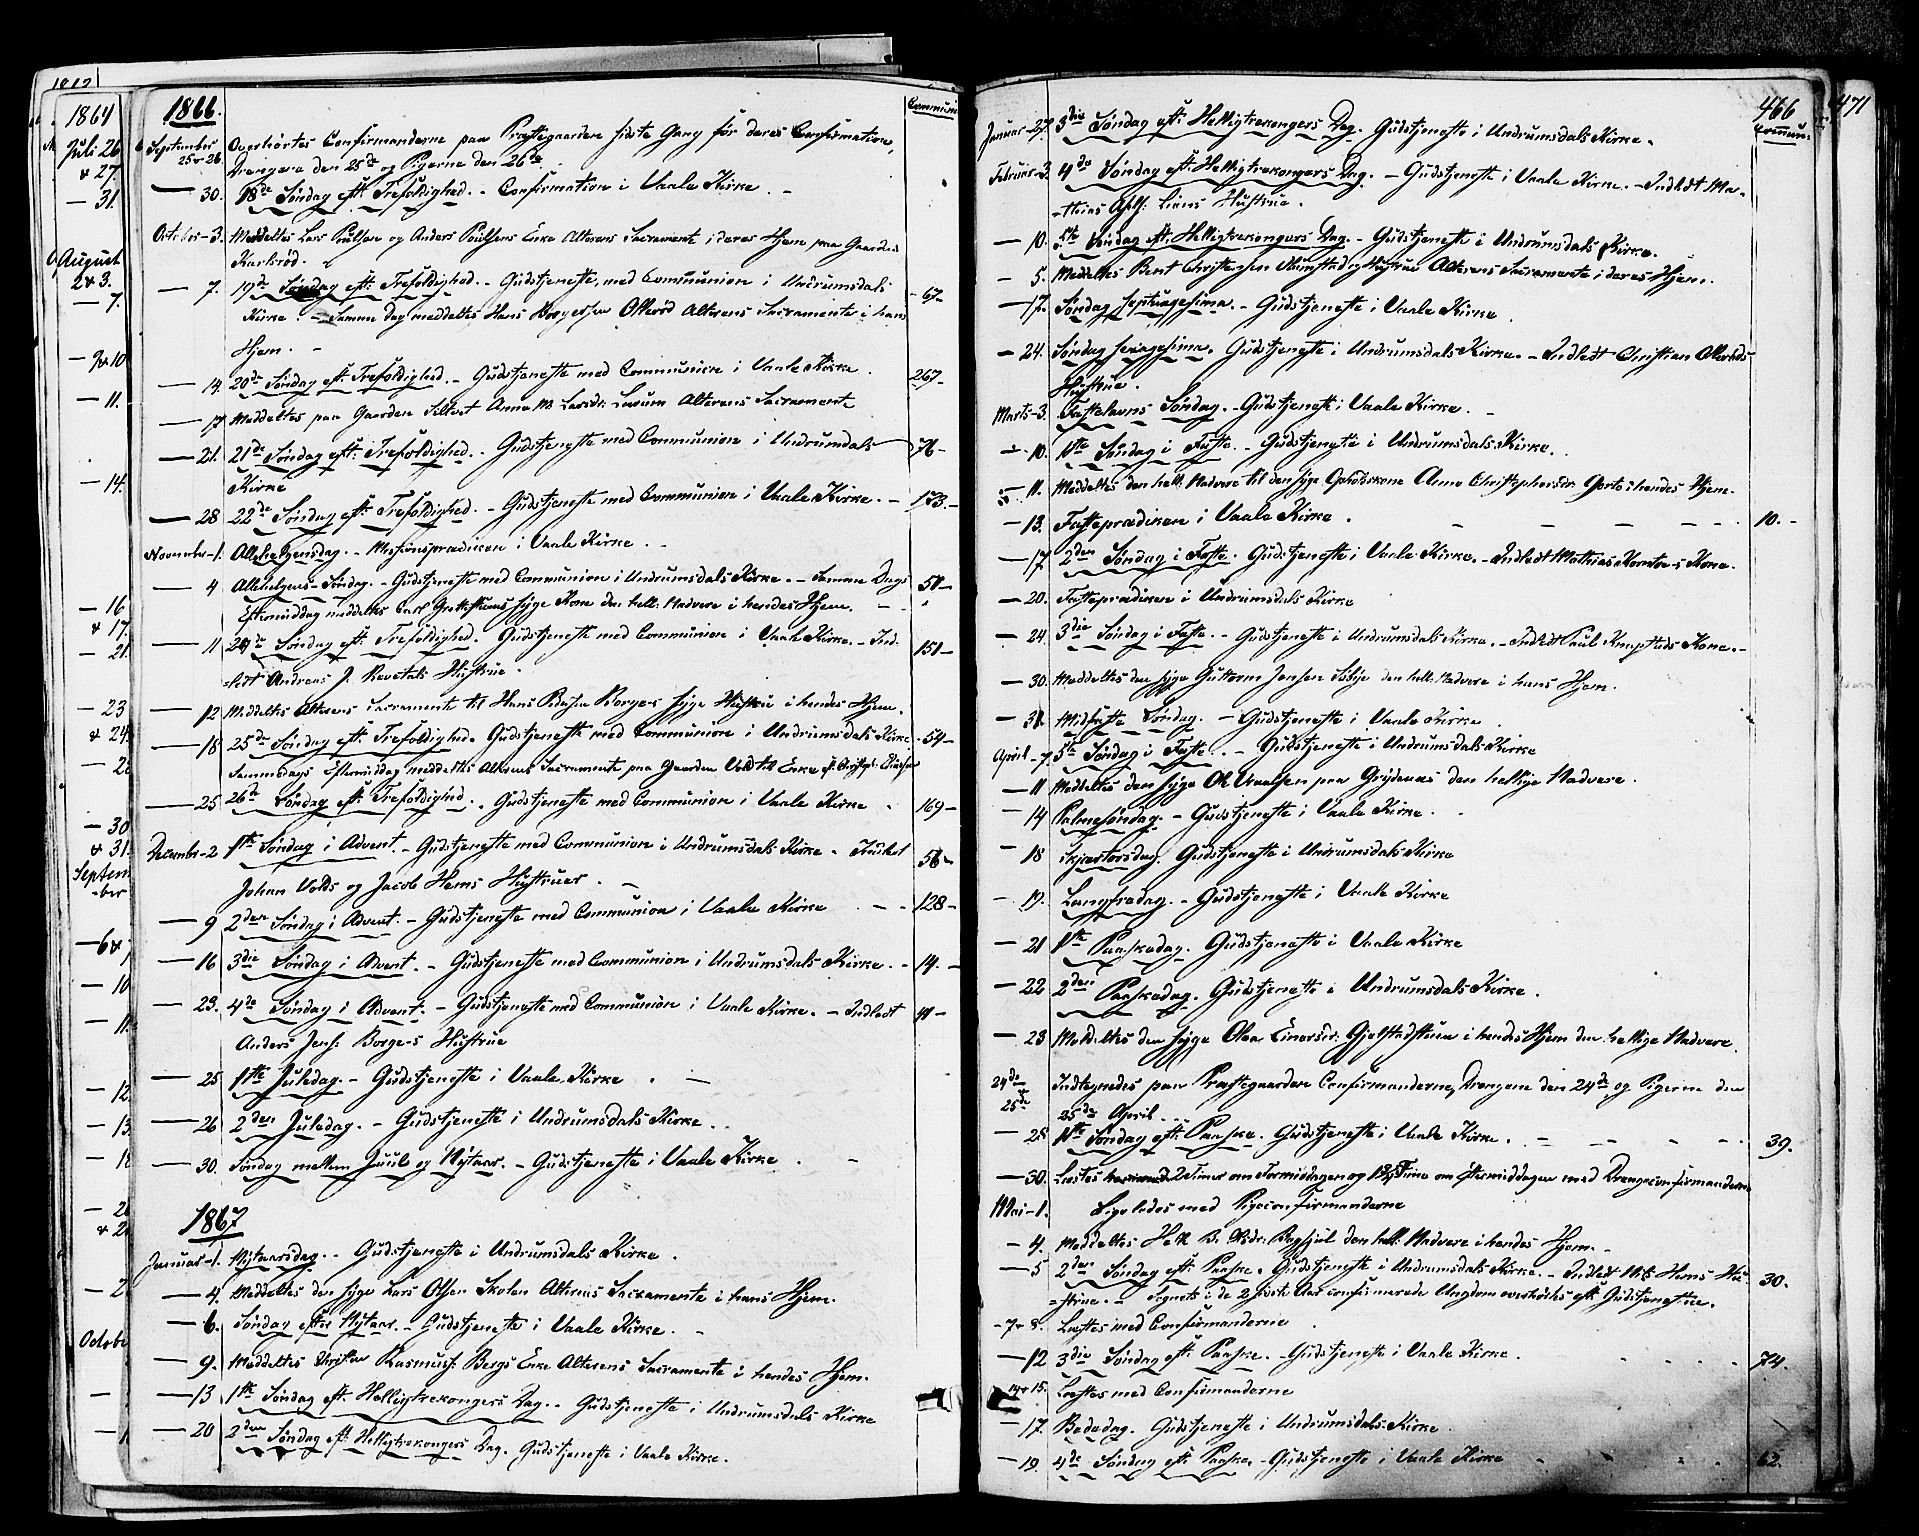 1866.
Communi
September 25 & 26. Overhørtes Confirmanderne paa Præstegaarden sidste Gang før deres Confirmation,
Drengene den 25de og Pigerne den 26de
— 30. 18de Søndag eft: Trefoldighed. – Confirmation i Vaale Kirke. –
October – 3. Meddeltes Lars Poulsen og Anders Poulsens Enke Alterens Sacramente i deres Hjem paa Gaarden
Karlsrød.
— 7. 19de Søndag eft: Trefoldighed. – Gudstjeneste, med Communion i Undrumsdals 67–
Kirke. – Samme Dag meddeltes Hans Borgersen Ollerød Alterens Sacramente i hans
Hjem. –
— 14. 20de Søndag eft: Trefoldighed. – Gudstjeneste med Communion i Vaale Kirke. 267–
— 17 Meddeltes paa Gaarden Anna M. Larsdr. Alterens Sacramente
— 21. 21de Søndag eft: Trefoldighed. – Gudstjeneste med Communion i Undrumsdals 76–
Kirke
— 28 22de Søndag eft: Trefoldighed. – Gudstjeneste med Communion i Vaale Kirke. – 173.–
November – 1. Allehelgensdag. – Missionsprædiken i Vaale Kirke. –
— 4 Allehelgens-Søndag. – Gudstjeneste med Communion i Undrumsdals Kirke. – Samme Dags 50–
Eftermiddag meddeltes Carl syge Kone den hell: Nadvere i hendes Hjem. –
— 11 24de Søndag eft: Trefoldighed. Gudstjeneste med Communion i Vaale Kirke. – Ind- 151–
ledt Andreas J. Revetals Hustrue.
— 12 Meddeltes Alterens Sacramente til Hans Borge-s syge Hustru i hendes Hjem.
— 18 25de Søndag eft: Trefoldighed. Gudstjeneste med Communion i Undrumsdals Kirke 54–
Sammedags Eftermiddag meddeltes Alterens Sacramente paa Gaarden Vold til Enke
— 25 26de Søndag eft: Trefoldighed. – Gudstjeneste med Communion i Vaale Kirke. 169–
December – 2 1ste Søndag i Advent. – Gudstjeneste med Communion i Undrumsdals Kirke – Indledt 56–
Johan Volds og Jacob Hems Hustruer. –
— 9 2den Søndag i Advent. – Gudstjeneste med Communion i Vaale Kirke – – 128–
— 16 3die Søndag i Advent. – Gudstjeneste med Communion i Undrumsdals Kirke. – 14. –
— 23. 4de Søndag i Advent. – Gudstjeneste med Communion i Vaale Kirke. – Indledt 41–
Anders Jens: Borge-s Hustrue
— 25 1ste Juledag. – Gudstjeneste i Vaale Kirke. –
— 26 2den Juledag. – Gudstjeneste i Undrumsdals Kirke. .
— 30. Søndag mellem Juul og Nytaar. – Gudstjeneste i Vaale Kirke. –
1867
Januar – 1. Nytaarsdag. – Gudstjeneste i Undrumsdals Kirke.
— 4. Meddeltes den syge Lars Olsen Skolen Alterens Sacramente i hans Hjem.
— 6. Søndag efter Nytaar. – Gudstjeneste i Vaale Kirke. –
— 9. Meddeltes Rasmus: Bergs Enke Alterens Sacramente i hendes Hjem.
— 13 1ste Søndag eft. Helligtrekongers Dag. – Gudstjeneste i Undrumsdals Kirke
— 20 2den Søndag eft: Helligtrekongers Dag. Gudstjeneste i Vaale Kirke.
466
Commun:
Januar – 27. 3die Søndag eft: Helligtrekongers Dag. Gudstjeneste i Undrumsdals Kirke.
Februar – 3. 4de Søndag eft: Helligtrekongers Dag. – Gudstjeneste i Vaale Kirke. – Indledt Ma-
thias Liens Hustrue.
— 10. 5te Søndag eft: Helligtrekongers Dag. – Gudstjeneste i Undrumsdals Kirke.
— 5. Meddeltes Bent Christensen og Hustrue Alterens Sacramente i deres Hjem.
— 17. Søndag septuagesima. – Gudstjeneste i Vaale Kirke.
— 24. Søndag sexagesima. Gudstjeneste i Undrumsdals Kirke. – Indledt Christian Ollerøds
Hustrue.
Marts – 3. Fastelavns Søndag. – Gudstjeneste i Vaale Kirke. –
— 10. 1ste Søndag i Faste. – Gudstjeneste i Undrumsdals Kirke.
— 11. Meddeltes den hell: Nadvere til den syge Anne Christophersdr. i hendes Hjem.
— 13. Fasteprædiken i Vaale Kirke. – – – – – 10. –
— 17 2den Søndag i Faste. Gudstjeneste i Vaale Kirke. – Indledt Mathias Kone.
— 20. Fasteprædiken i Undrumsdals Kirke
— 24. 3die Søndag i Faste. – Gudstjeneste i Undrumsdals Kirke. – Indledt Paul Knapstads Kone. –
— 30. Meddeltes den syge Guttorm Jensen den hell: Nadvere i hans Hjem.
— 31. Midfaste Søndag. – Gudstjeneste i Vaale Kirke.
April – 7. 5te Søndag i Faste. – Gudstjeneste i Undrumsdals Kirke
— 11 Meddeltes den syge paa den hellige Nadvere.
— 14 Palmesøndag. – Gudstjeneste i Vaale Kirke.
— 18 Skjærtorsdag. Gudstjeneste i Undrumsdals Kirke
— 19. Langfredag. – Gudstjeneste i Vaale Kirke
— 21 1ste Paaskedag. Gudstjeneste i Vaale Kirke
— 22 2den Paaskedag. Gudstjeneste i Undrumsdals Kirke.
— 23 Meddeltes den syge Olea Einarsdr. i hendes Hjem den hellige Nadvere.
24de & 25de Indtegnedes paa Præstegaarden Confirmanderne, Drengene den 24de og Pigerne den
25de April. . .
— 28 1ste Søndag eft: Paaske. Gudstjeneste i Vaale Kirke. – – – – 39.
— 30. Læstes 2 Timer om Formiddagen og Time om Eftermiddagen med Drengeconfirmanderne
Mai – 1. Ligeledes med Pigeconfirmanderne
— 4. Meddeltes den hell: Nadvere i hendes Hjem. –
— 5 2den Søndag eft: Paaske. Gudstjeneste i Undrumsdals Kirke. – Indledt Hems Hu- 30.
strue. – Sognets i de 2 sidste Aar confirmerede Ungdom overhørtes eft: Gudstjenesten.
– 7 & 8. Læstes med Confirmanderne
— 12 3die Søndag eft: Paaske. – Gudstjeneste i Vaale Kirke. 74.
14 & 15. Læstes med Confirmanderne
— 17. Bededag. Gudstjeneste i Undrumsdals Kirke.
— 19. 4de Søndag eft: Paaske – Gudstjeneste i Vaale Kirke 62.
471
1864
Juli 26
& 27.
– 31.
August
2 & 3.
– 7.
– 9 & 10
– 11.
– 14.
– 16
& 17.
– 21.
– 23
& 24.
– 30
& 31.
Septem
-ber
– 10
– 11.
– 12.
– 13.
– 18
Octobe